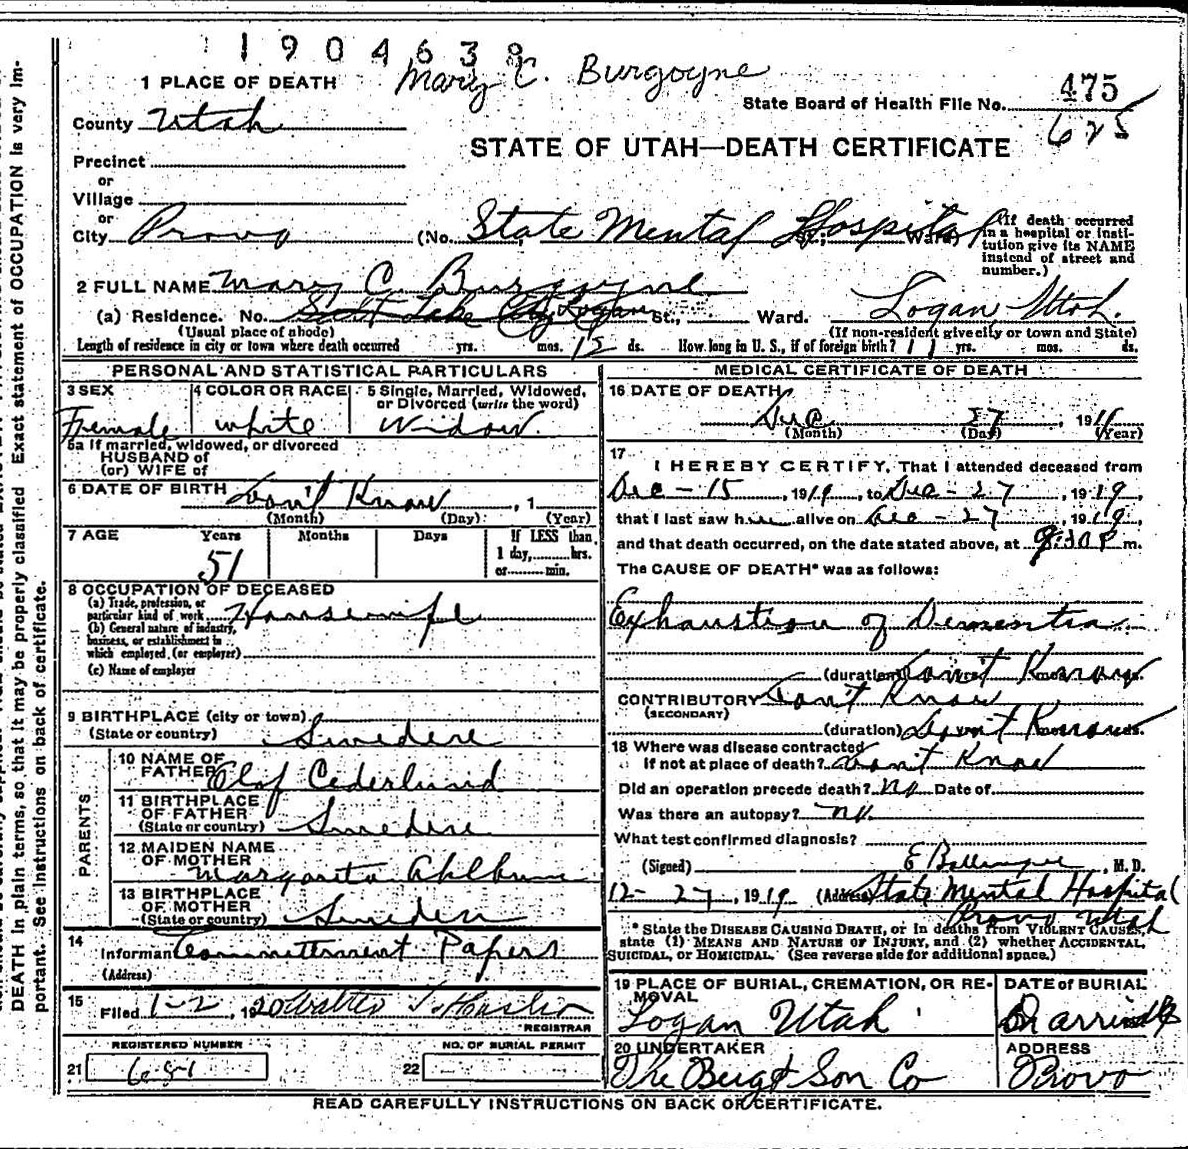 1904638
Mary C. Burgoyne
1 PLACE OF DEATH
State Board of Health File No. 475
625
County Utah
STATE OF UTAH—DEATH CERTIFICATE
Precinct
or
Village
or
City Provo (No. State Mental Hospital St.; Ward)
(If death occurred in a hospital or insti-
tution give its NAME
instead of street and
number.)
2 FULL NAME Mary C. Burgoyne
(a) Residence. No. Salt Lake City Logan St., Ward. Logan Utah.
(Usual place of abode) (If non-resident give city or town and State)
Length of residence in city or town where death occurred yrs. mos. 12 ds. How long in U. S., if of foreign birth? yrs. mos. ds.
PERSONAL AND STATISTICAL PARTICULARS
3 SEX 4 COLOR OR RACE 5 Single, Married, Widowed,
or Divorced (write the word)
Female white Widow.
5a If married, widowed, or divorced
HUSBAND of
(or) WIFE of
6 DATE OF BIRTH Don't Know , 1
(Month) (Day) (Year)
7 AGE Years Months Days If LESS than
1 day, hrs.
or min.
51
8 OCCUPATION OF DECEASED
(a) Trade, profession, or
particular kind of work Housewife
(b) General nature of industry,
business, or establishment in
which employed (or employer)
(c) Name of employer
9 BIRTHPLACE (city or town)
(State or country) Swedene
PARENTS
10 NAME OF
FATHER Olof Cederlund
11 BIRTHPLACE
OF FATHER
(State or country) Swedene
12 MAIDEN NAME
OF MOTHER
Margarita
13 BIRTHPLACE
OF MOTHER
(State or country) Sweden
14
Informant Committement Papers
(Address)
15
Filed 1-2, 1920
REGISTRAR
REGISTERED NUMBER NO. OF BURIAL PERMIT
21 681 22
MEDICAL CERTIFICATE OF DEATH
16 DATE OF DEATH
Dec 27, 191
(Month) (Day) (Year)
17
I HEREBY CERTIFY, That I attended deceased from
Dec - 15, 1919, to Dec - 27, 1919,
that I last saw her alive on Dec - 27, 1919,
and that death occurred, on the date stated above, at 8:30 P m.
The CAUSE OF DEATH* was as follows:
Exhaustion of Dementia.
(duration) Don't Know
CONTRIBUTORY Don't Know
(SECONDARY)
(duration) Don't Know
18 Where was disease contracted
If not at place of death? Don't Know
Did an operation precede death? No Date of
Was there an autopsy? No.
What test confirmed diagnosis?
(Signed) M. D.
12-27, 1919 (Address) State Mental Hospital
Provo Utah
* State the DISEASE CAUSING DEATH, or in deaths from VIOLENT CAUSES,
state (1) MEANS AND NATURE OF INJURY, and (2) whether ACCIDENTAL,
SUICIDAL, or HOMICIDAL. (See reverse side for additional space.)
19 PLACE OF BURIAL, CREMATION, OR RE-
MOVAL
Logan Utah
DATE of BURIAL
20 UNDERTAKER
The Berg & Son Co
ADDRESS
Provo
READ CAREFULLY INSTRUCTIONS ON BACK OF CERTIFICATE.
DEATH in plain terms, so that it may be properly classified. Exact statement of OCCUPATION is very im-
portant. See instructions on back of certificate.